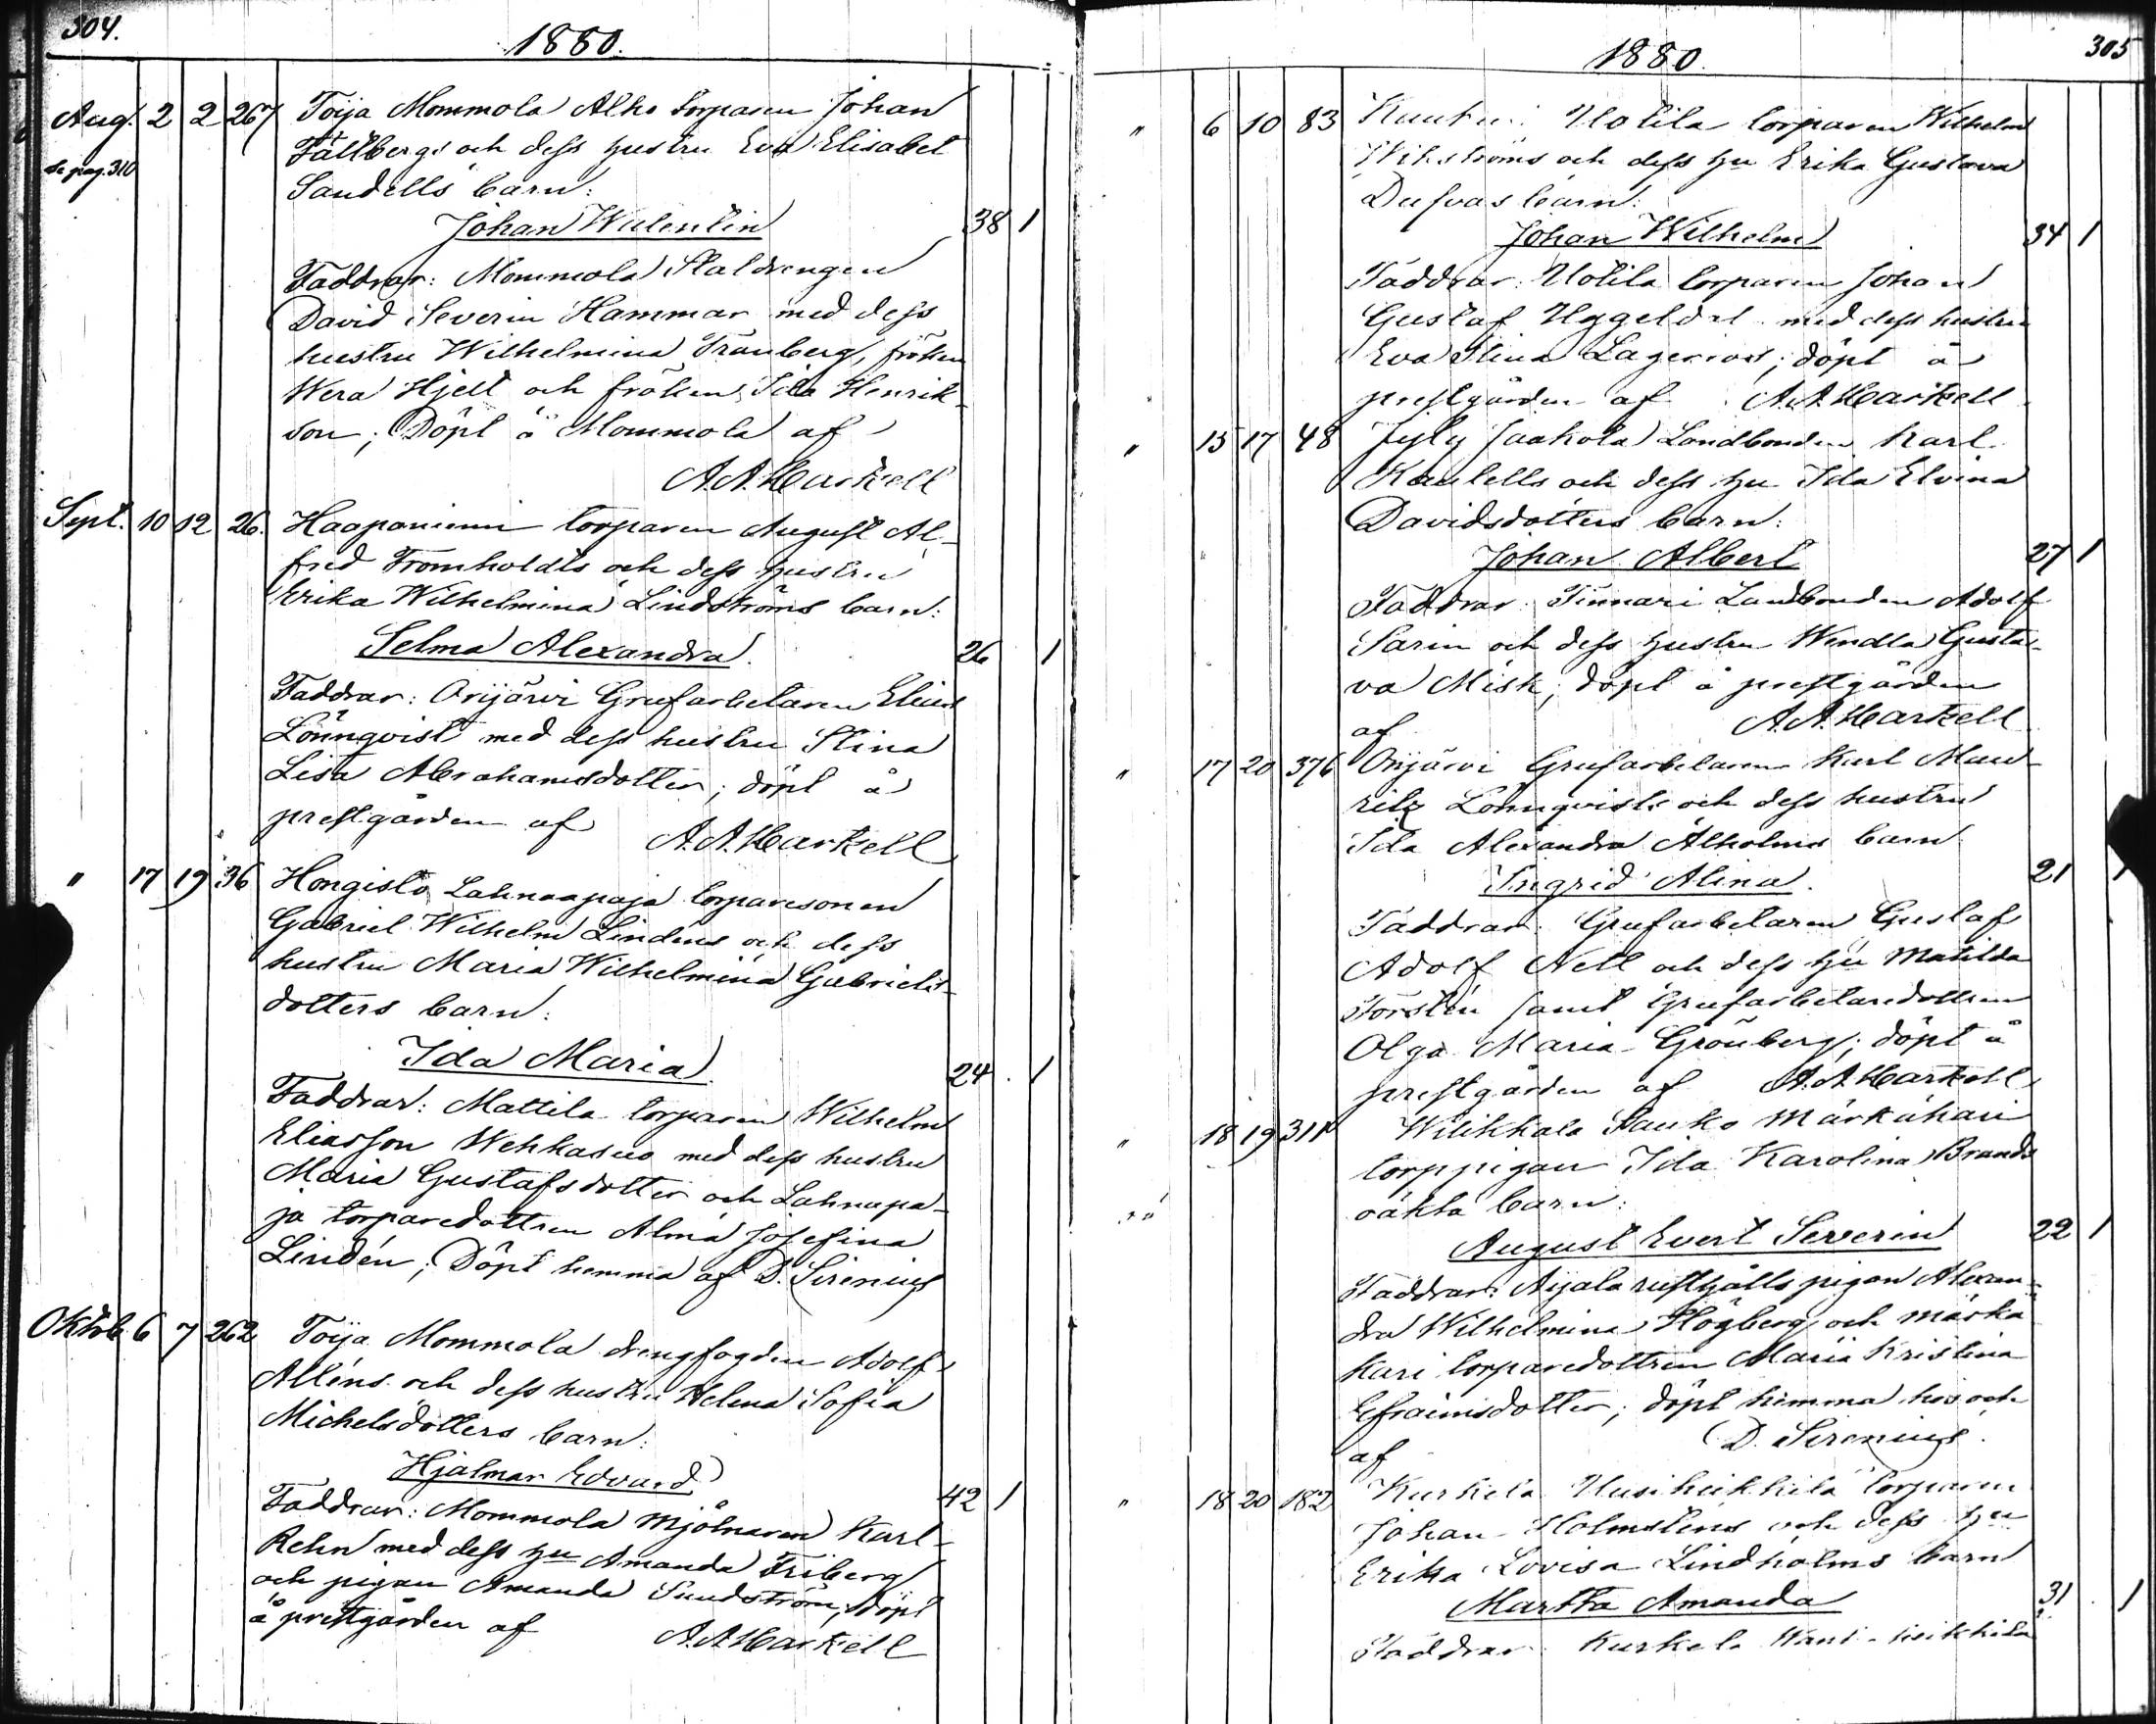 304.
1880.
Aug. 2 2 267 Toija Mommola Alho torparen Johan
se pag. 310 Fällbergs och dess hustru Eva Elisabet
Sandells barn:
Johan Walentin 38 1
Faddrar: Mommola Staldrengen
David Severin Hammar med dess
hustru Wilhelmina Tranberg, fröken
Wera Hjelt och fröken Ida Henrik-
son; Döpt å Mommola af
A.A. Markell
Sept. 10 12 26. Haapaniemi torparen August Al-
fred Fromholdts och dess hustru
Erika Wilhelmina Lindströms barn:
Selma Alexandra. 26 1
Faddrar: Orijärvi Grufarbetaren Elias
Lönnqvist med dess hustru Stina
Lisa Abrahamsdotter; döpt å
prestgården af A.A. Markell
" 17 19 36 Hongisto Lahnaapaja torparesonen
Gabriel Wilhelm Lindéns och dess
hustru Maria Wilhelmina Gabriels-
dotters barn:
Ida Maria. 24 1
Faddrar: Mattila torparen Wilhelm
Eliasson Wehkasuo med dess hustru
Maria Gustafsdotter och Lahnapa-
ja torparedottren Alma Josefina
Lindén; Döpt hemma af D. Sirenius
Oktob. 6 7 262 Toija Mommola drengfogden Adolf
Alléns och dess hustru Helena Sofia
Michelsdotters barn:
Hjalmar Edvard 42 1
Faddrar: Mommola Mjölnaren Karl
Rehn med dess hu Amanda Friberg
och pigan Amanda Sundström; döpt
å prestgården af A.A. Markell
1880.
305
" 6 10 83 Uotila torparen Wilhelm
Wikströms och dess hu Erika Gustava
Dufvas barn:
Johan Wilhelm 34 1
Faddrar: Uotila torparen Johan
Gustaf Uggeldal med dess hustru
Eva Stina Lagerroos; döpt å
prestgården af A.A. Markell
" 15 17 48 Jyly Jaakola Landbonden Karl
Kaulells och dess hu Ida Elvina
Davidsdotters barn:
Johan Albert 27 1
Faddrar: Tinnari Landbonden Adolf
Sarin och dess hustru Wendla Gusta-
va Misk; döpt å prestgården
af A.A. Markell
" 17 20 376 Orijärvi Grufarbetaren Karl Mau-
ritz Lönnqvists och dess hustru
Ida Alexandra Alholms barn
Ingrid Alina. 21 1
Faddrar: Grufarbetaren Gustaf
Adolf Nell och dess hu Matilda
Forstén samt Grufarbetaredottren
Olga Maria Grönberg; döpt å
prestgården af A.A. Markell
" 18 19 311 Wilikkala Sauko Märkähari
torppigan Ida Karolina Brands
oäkta barn:
August Evert Severin 22 1
Faddrar: Aijala rusthålls pigan Alexan-
dra Wilhelmina Högberg och märkä
hari torparedottren Maria Kristina
Efraimsdotter; döpt hemma hos och
af D. Sirenius.
" 18 20 182 Kurkela Uusiheikkilä torparen
Johan Holmsténs och dess hu
Erika Lovisa Lindholms barn
Martha Amanda 31 1
Faddrar: Kurkela heikkilä